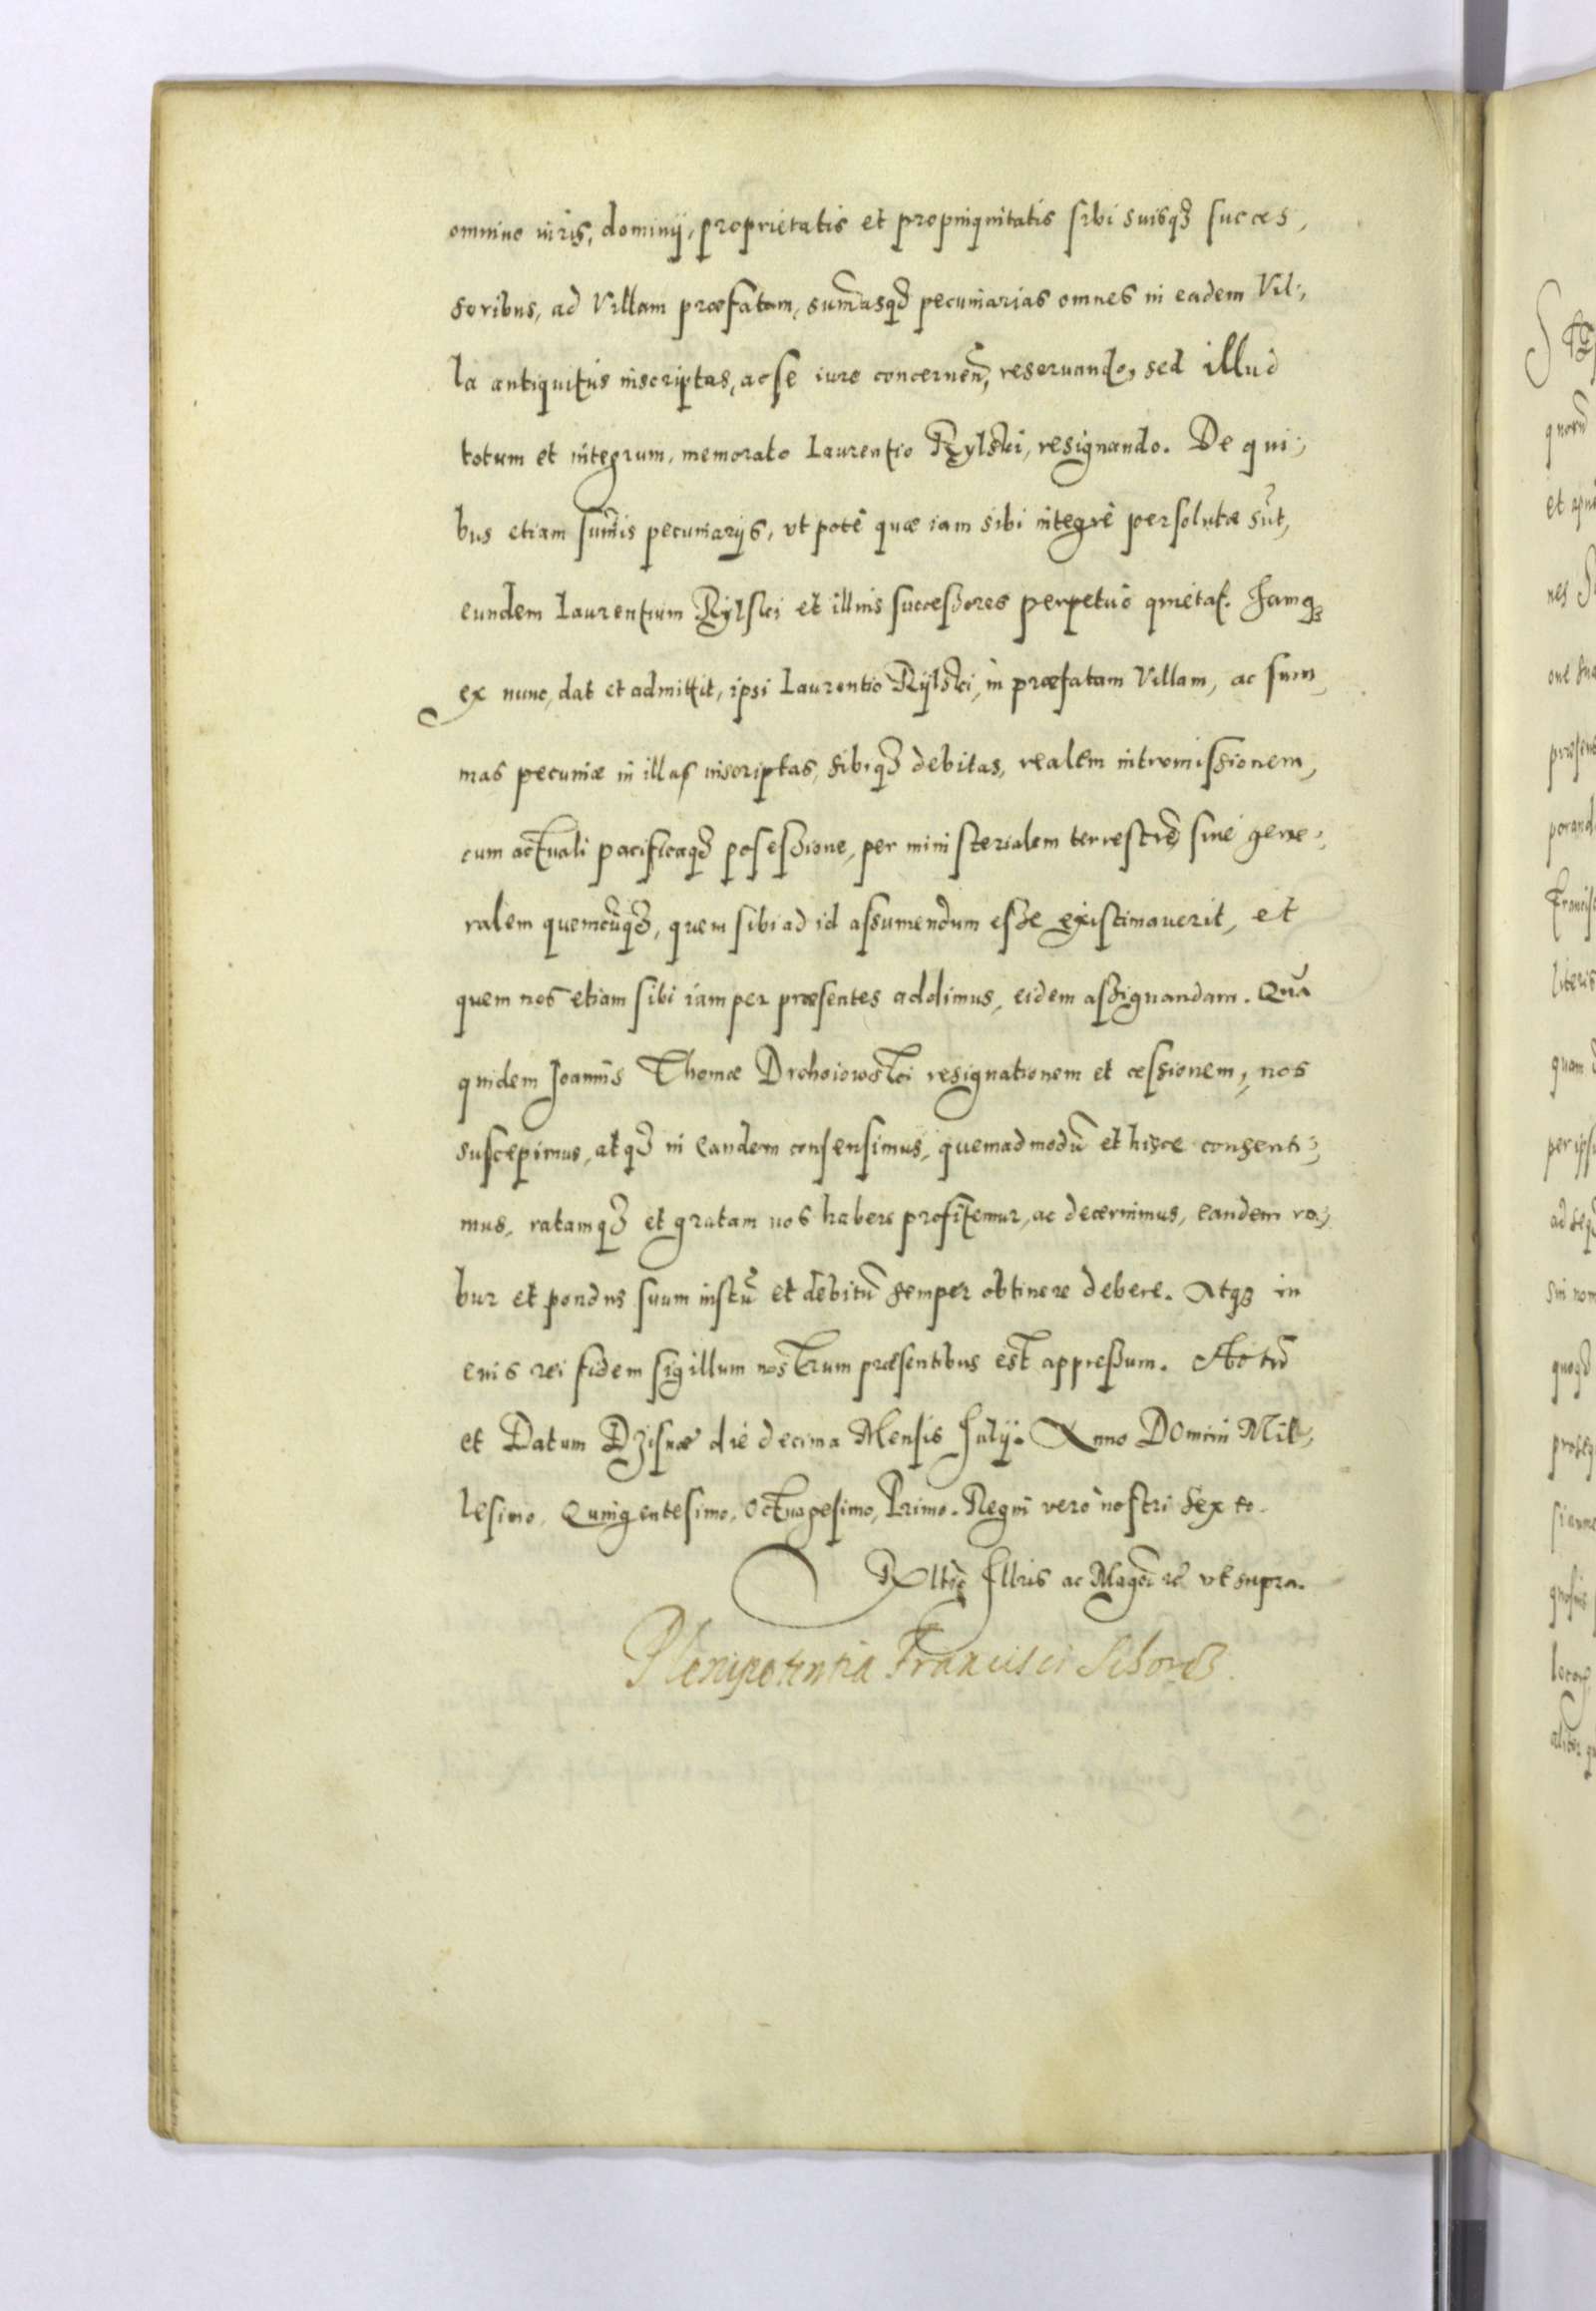 omnino iuris, dominij, proprietatis et propinquitatis sibi suisqꝫ succes,
soribus, ad Villam præfatam, sum̃asqꝫ pecuniarias omnes in eadem Vil,
la antiquitus inscriptas, ac se iure concerneñ, reseruando, sed illud
totum et integrum, memorato Laurentio Rylski, resignando. De qui,
bus etiam sum̃is pecuniarijs, vt potè quæ iam sibi integrè persolutæ sūt,
eundem Laurentium Rylski et illius successores perpetuò quietaſ. Iamqꝫ
ex nunc, dat et admittit, ipsi Laurentio Rylski, in præfatam Villam, ac sum,
mas pecuniæ in illaſ inscriptas, sibiqꝫ debitas, realem intromissionem,
cum actuali pacificaqꝫ posessione, per ministerialem terrestrẽ siuè gene,
ralem quemcūqꝫ, quem sibi ad id assumendum esse existimauerit, et
quem nos etiam sibi iam per præsentes addimus, eidem assignandam. Quā
quidem Joannis Thomæ Drohoiowski resignationem et cessionem, nos
suscepimus, atqꝫ in eandem consensimus, quemadmodū et hisce consenti,
mus, ratamqꝫ et gratam nos habere profitemur, ac decernimus, eandem ro,
bur et pondus suum iustū et debitū semper obtinere debere. Atqꝫ in
cuis rei fidem sigillum nostrum præsentibus est appressum. Actū
et Datum Dzisnæ die decima Mensis Iulij. Anno Domini Mil,
lesimo, Quingentesimo, Octuagesimo, Primo. Regni verò nostri Sexto.
Rltio Illris ac Magci rc̃ vt supra.
Plenipotentia Francisci